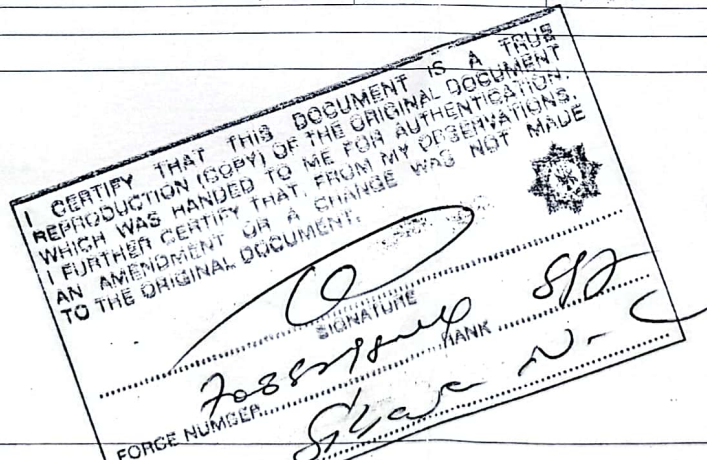 I CERTIFY THAT THIS DOCUMENT IS A TRUE
REPRODUCTION (COPY) OF THE ORIGINAL DOCUMENT
WHICH WAS HANDED TO ME FOR AUTHENTICATION.
I FURTHER CERTIFY THAT, FROM MY OBSERVATIONS,
AN AMENDMENT OR A CHANGE WAS NOT MADE
TO THE ORIGINAL DOCUMENT.
SIGNATURE
RANK
FORCE NUMBER